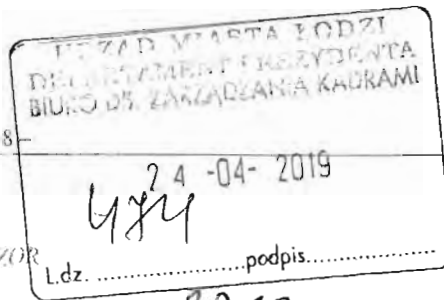 URZĄD MIASTA ŁODZI
DEPARTAMENT PREZYDENTA
BIURO DS. ZARZĄDZANIA KADRAMI
8
24 -04- 2019
474
ZOR
L.dz. ....................podpis....................